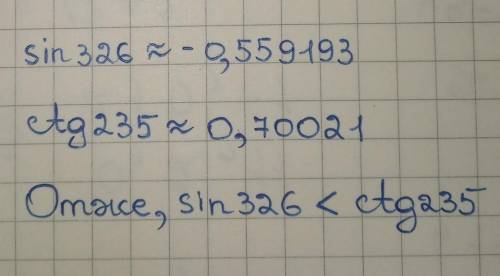 sin 326 ≈ - 0,559193
ctg 235 ≈ 0,70021
Отже, sin 326 < ctg 235